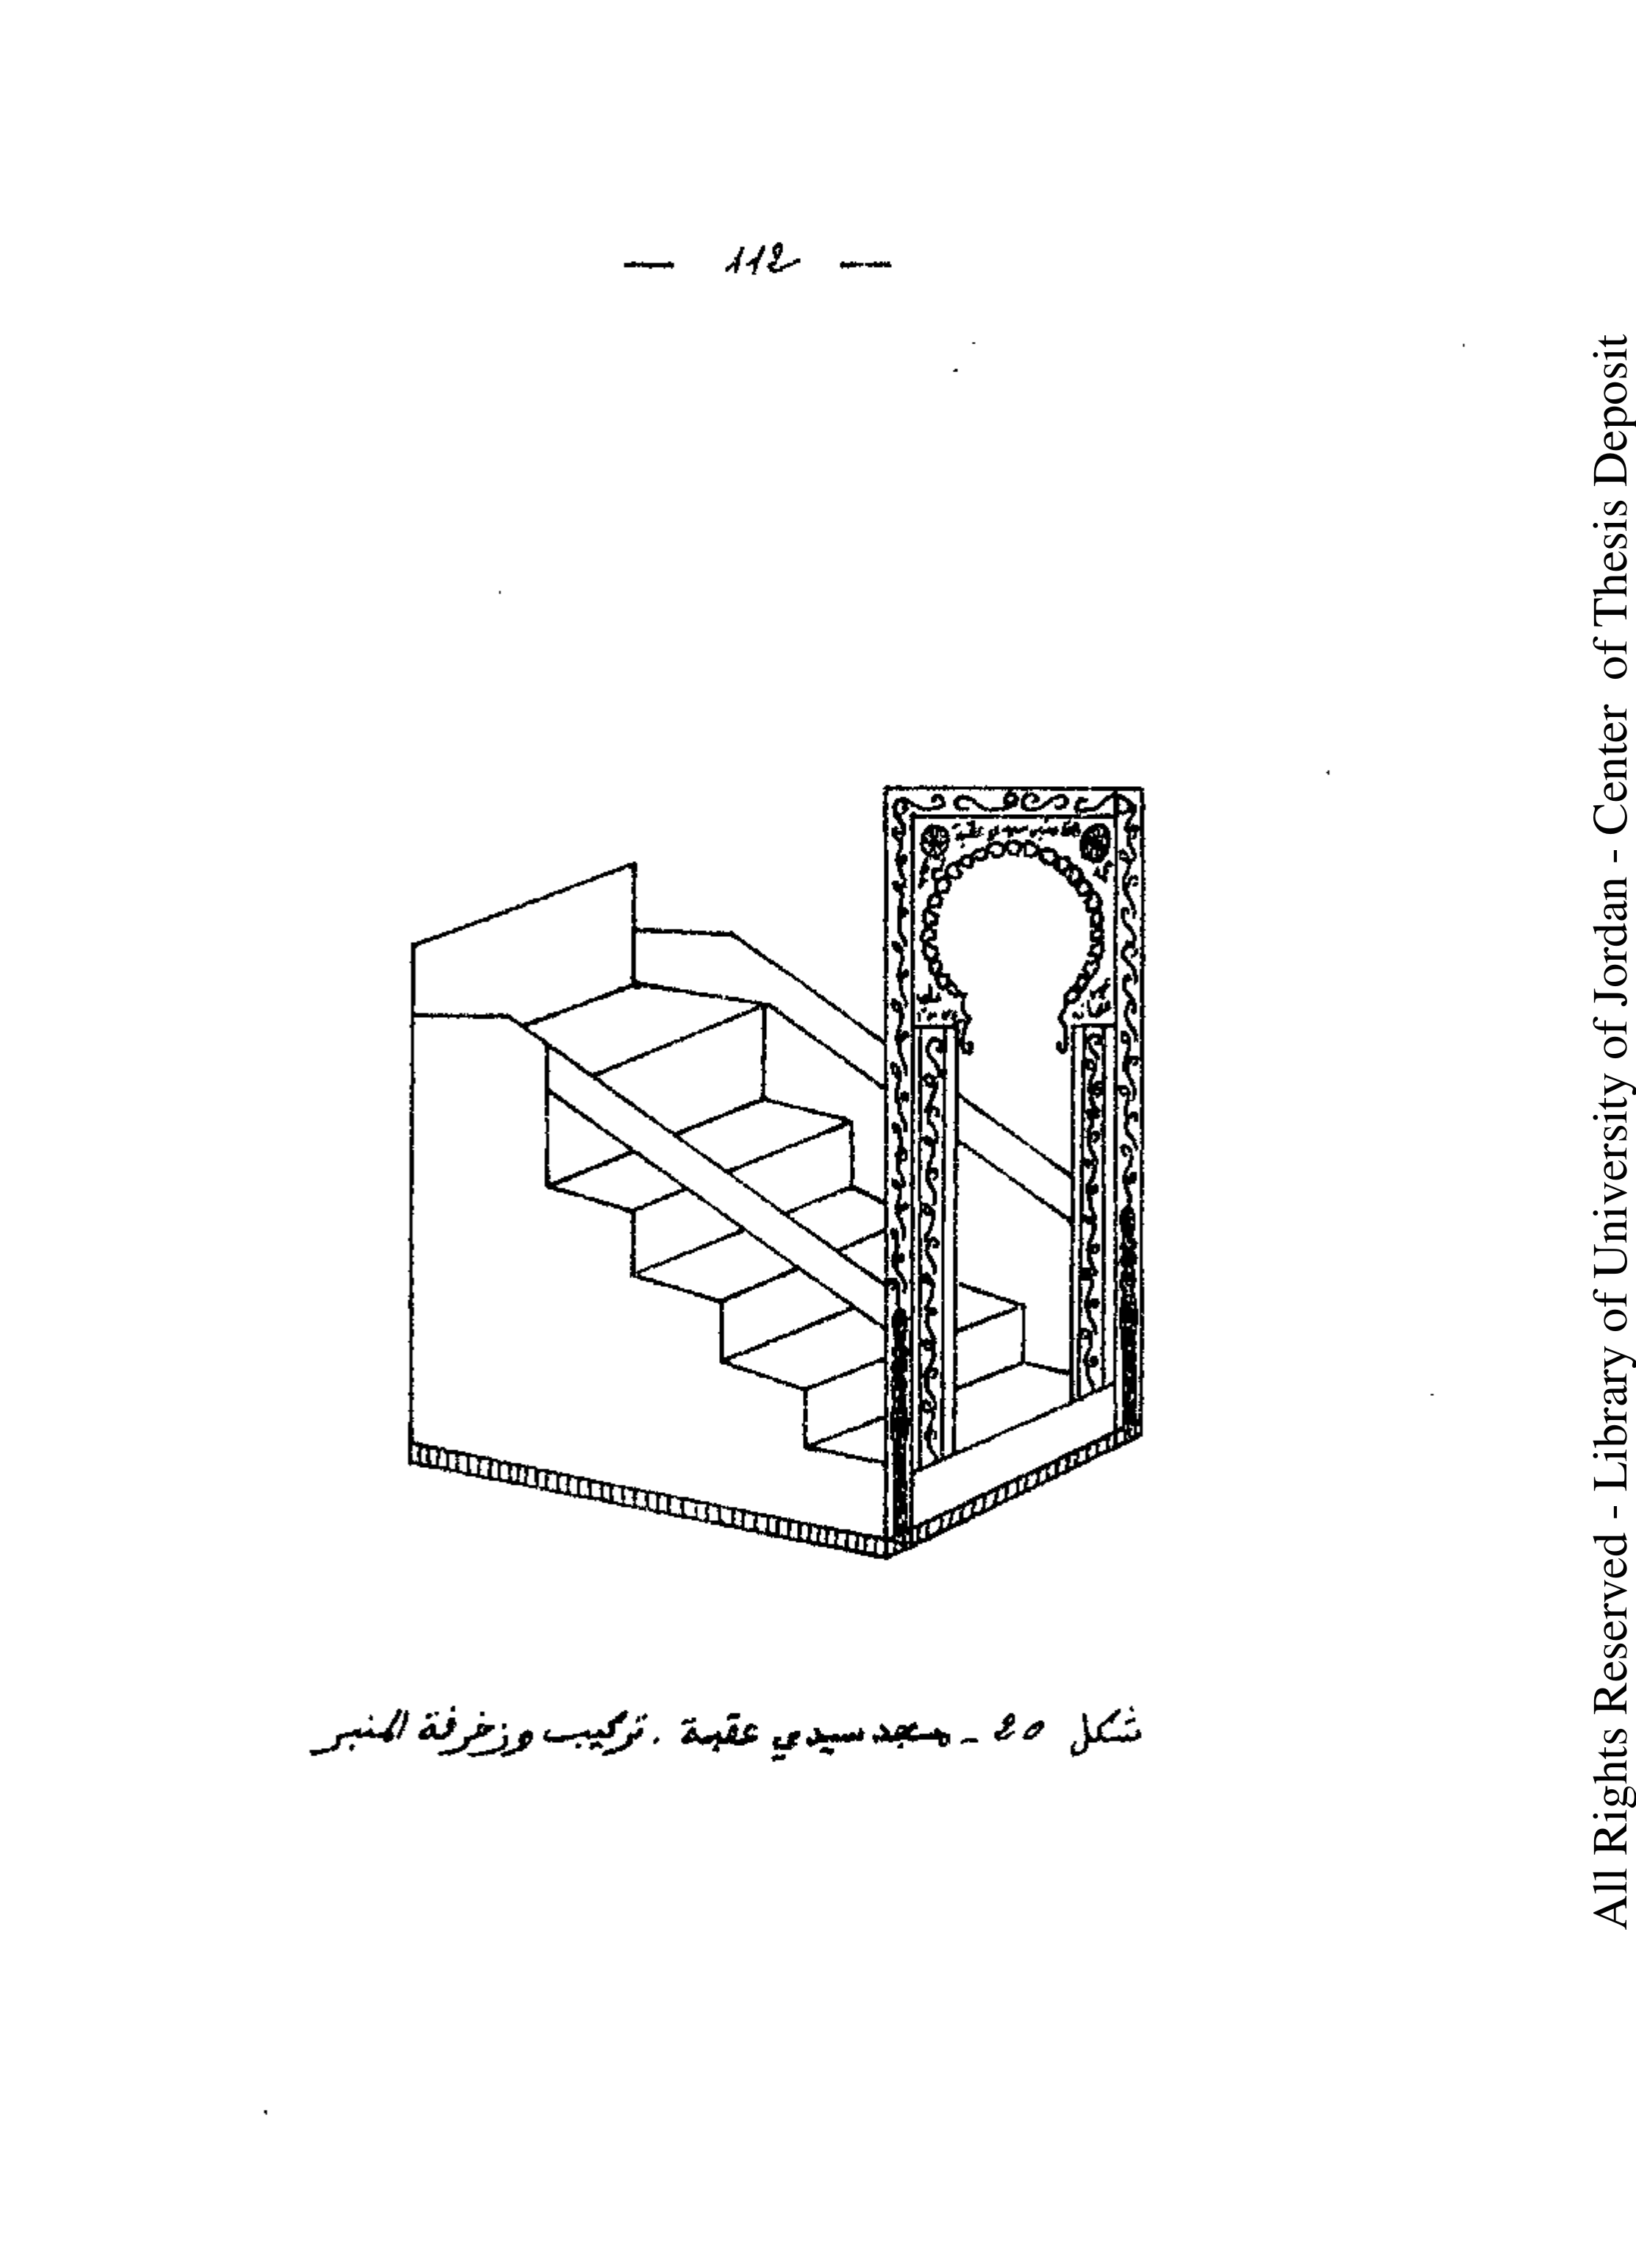 — 112 —
شكل 20 - مسجد سيدي عقبة . تركيب وزخرفة المنبر
All Rights Reserved - Library of University of Jordan - Center of Thesis Deposit